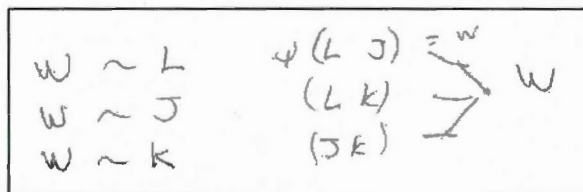 W ~ L
W ~ J
W ~ K
ψ (L J) = w
(L K)
(J K)
W